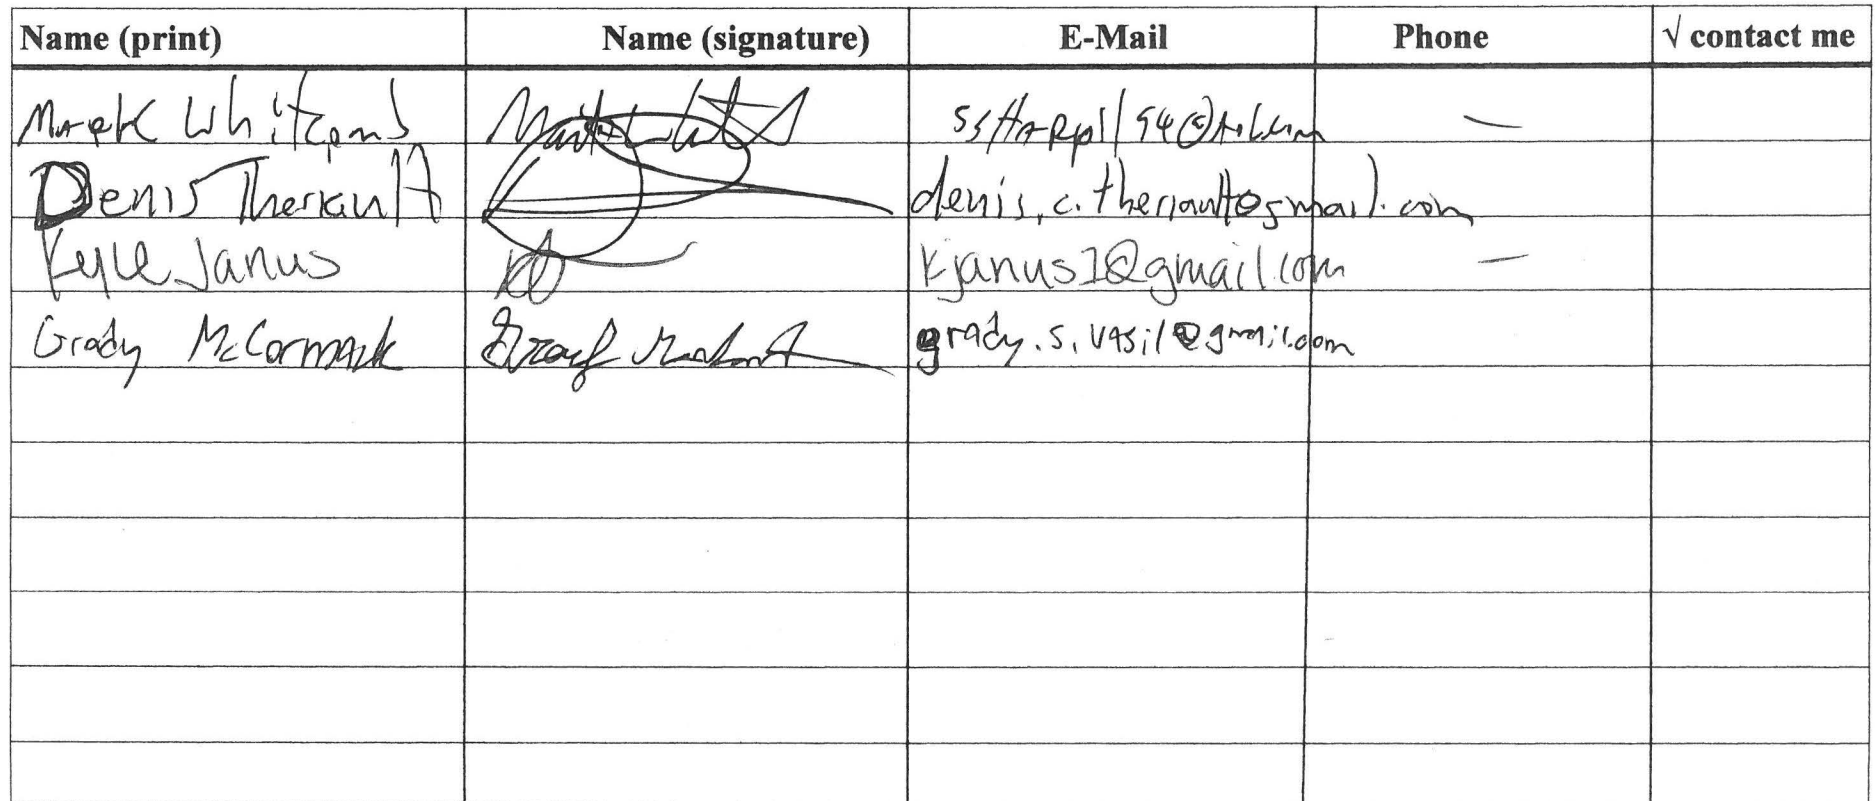 Name (print) Name (signature) E-Mail Phone √ contact me
Mark Whitcomb —
Denis Theriault denis.c.theriault@gmail.com
Kyle Janus kjanus1@gmail.com —
Grady McCormack grady.s.vasil@gmail.com